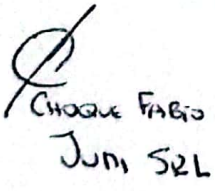 CHOQUE FABIO
JUMI SRL